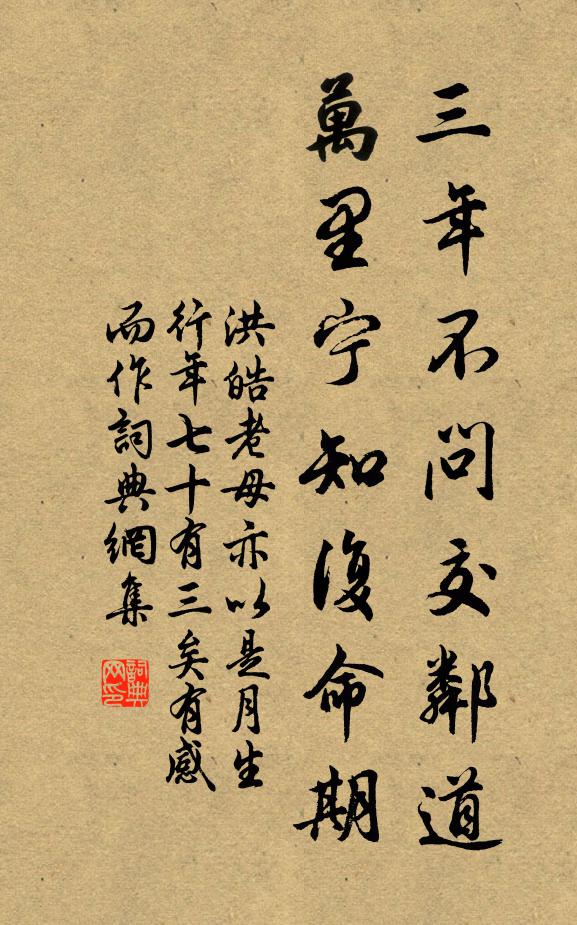 三年不問交鄰道
萬里宁知復命期
洪皓老母亦以是月生
行年七十有三矣有感
而作詞典網集
詞典
网印